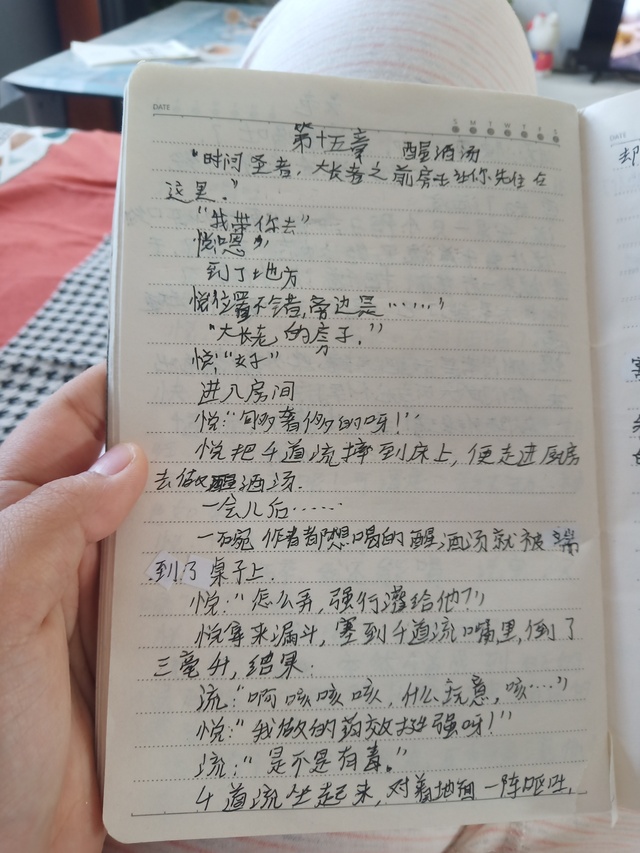 DATE
S M T W T F S
第十五章 醒酒汤
"时间圣者,大长老之前房子让你先住在
这里."
"我带你去"
悦"嗯"
到了地方
悦位置不错,旁边是……"
"大长老的房子."
悦:"好"
进入房间
悦:"够奢侈的呀!"
悦把千道流摔到床上,便走进厨房
去做醒酒汤.
一会儿后……
一碗作者都想喝的醒酒汤就被端
到了桌子上.
悦:"怎么弄,强行灌给他?"
悦拿来漏斗,塞到千道流嘴里,倒了
三毫升,结果:
流:"啊咳咳咳,什么玩意,咳…"
悦:"我做的药效挺强呀!"
流:"是不是有毒."
千道流坐起来,对着地面一阵呕吐.
DATE
却